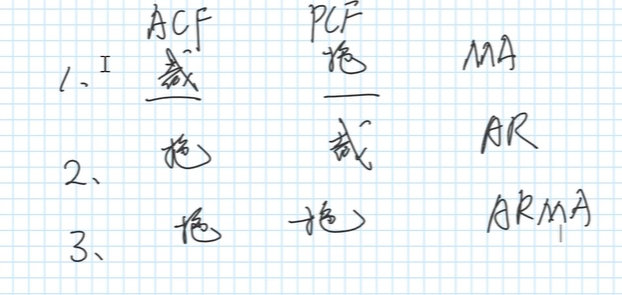 ACF PCF
1、截 拖 MA
2、拖 截 AR
3、拖 拖 ARMA